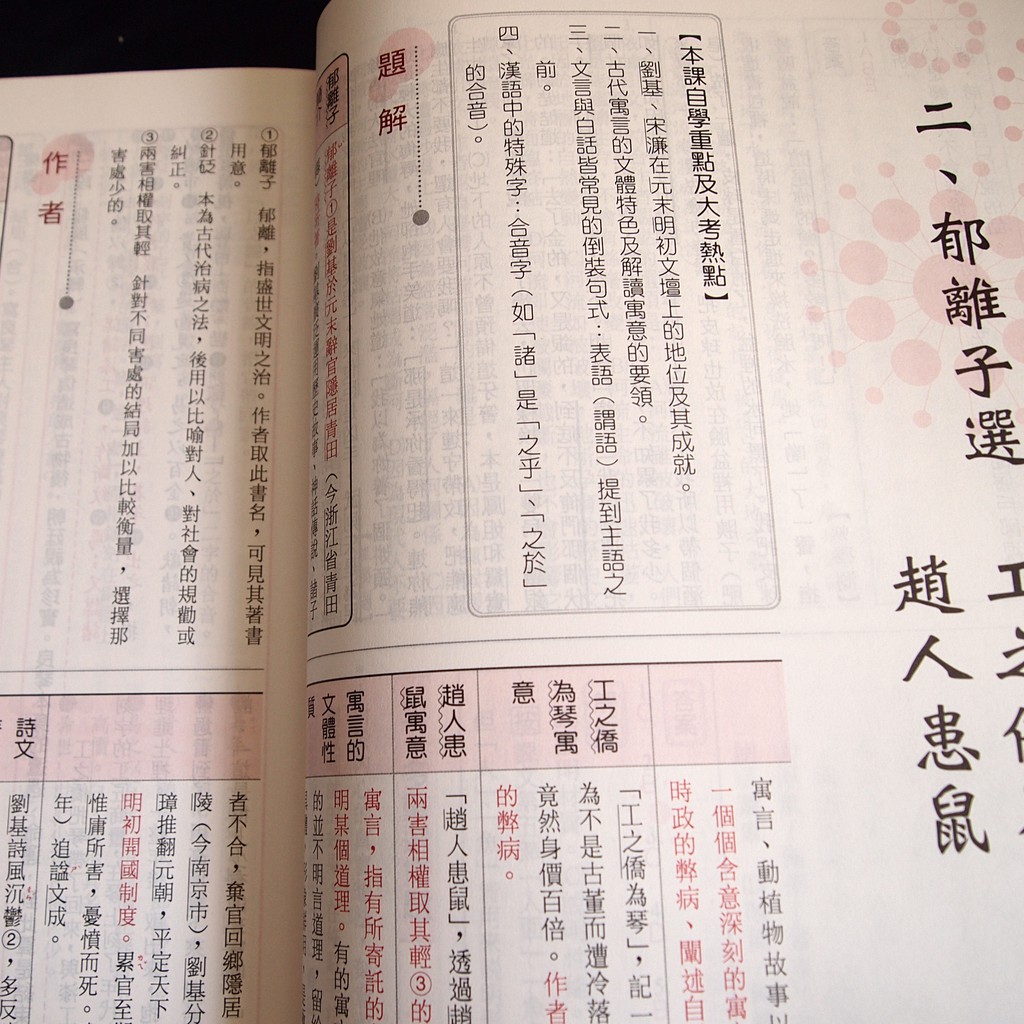 二、郁離子選
工之僑
趙人患鼠
【本課自學重點及大考熱點】
一、劉基、宋濂在元末明初文壇上的地位及其成就。
二、古代寓言的文體特色及解讀寓意的要領。
三、文言與白話皆常見的倒裝句式：表語（謂語）提到主語之
前。
四、漢語中的特殊字：合音字（如「諸」是「之乎」、「之於」
的合音）。
題解
郁離子
郁離子①是劉基於元末辭官隱居青田（今浙江省青田
寓言、動植物故事以
一個個含意深刻的寓
時政的弊病、闡述自
工之僑
為琴寓
意
「工之僑為琴」，記一
為不是古董而遭冷落
竟然身價百倍。作者
的弊病。
趙人患
鼠寓意
「趙人患鼠」，透過趙
兩害相權取其輕③的
寓言的
文體性
質
寓言，指有所寄託的
明某個道理。有的寓
的並不明言道理，留給
①郁離子　郁離，指盛世文明之治。作者取此書名，可見其著書
用意。
②針砭　本為古代治病之法，後用以比喻對人、對社會的規勸或
糾正。
③兩害相權取其輕　針對不同害處的結局加以比較衡量，選擇那
害處少的。
作者
者不合，棄官回鄉隱居
陵（今南京市），劉基分
璋推翻元朝，平定天下
明初開國制度。累官至
惟庸所害，憂憤而死。
年）追諡文成。
詩文
劉基詩風沉鬱②，多反